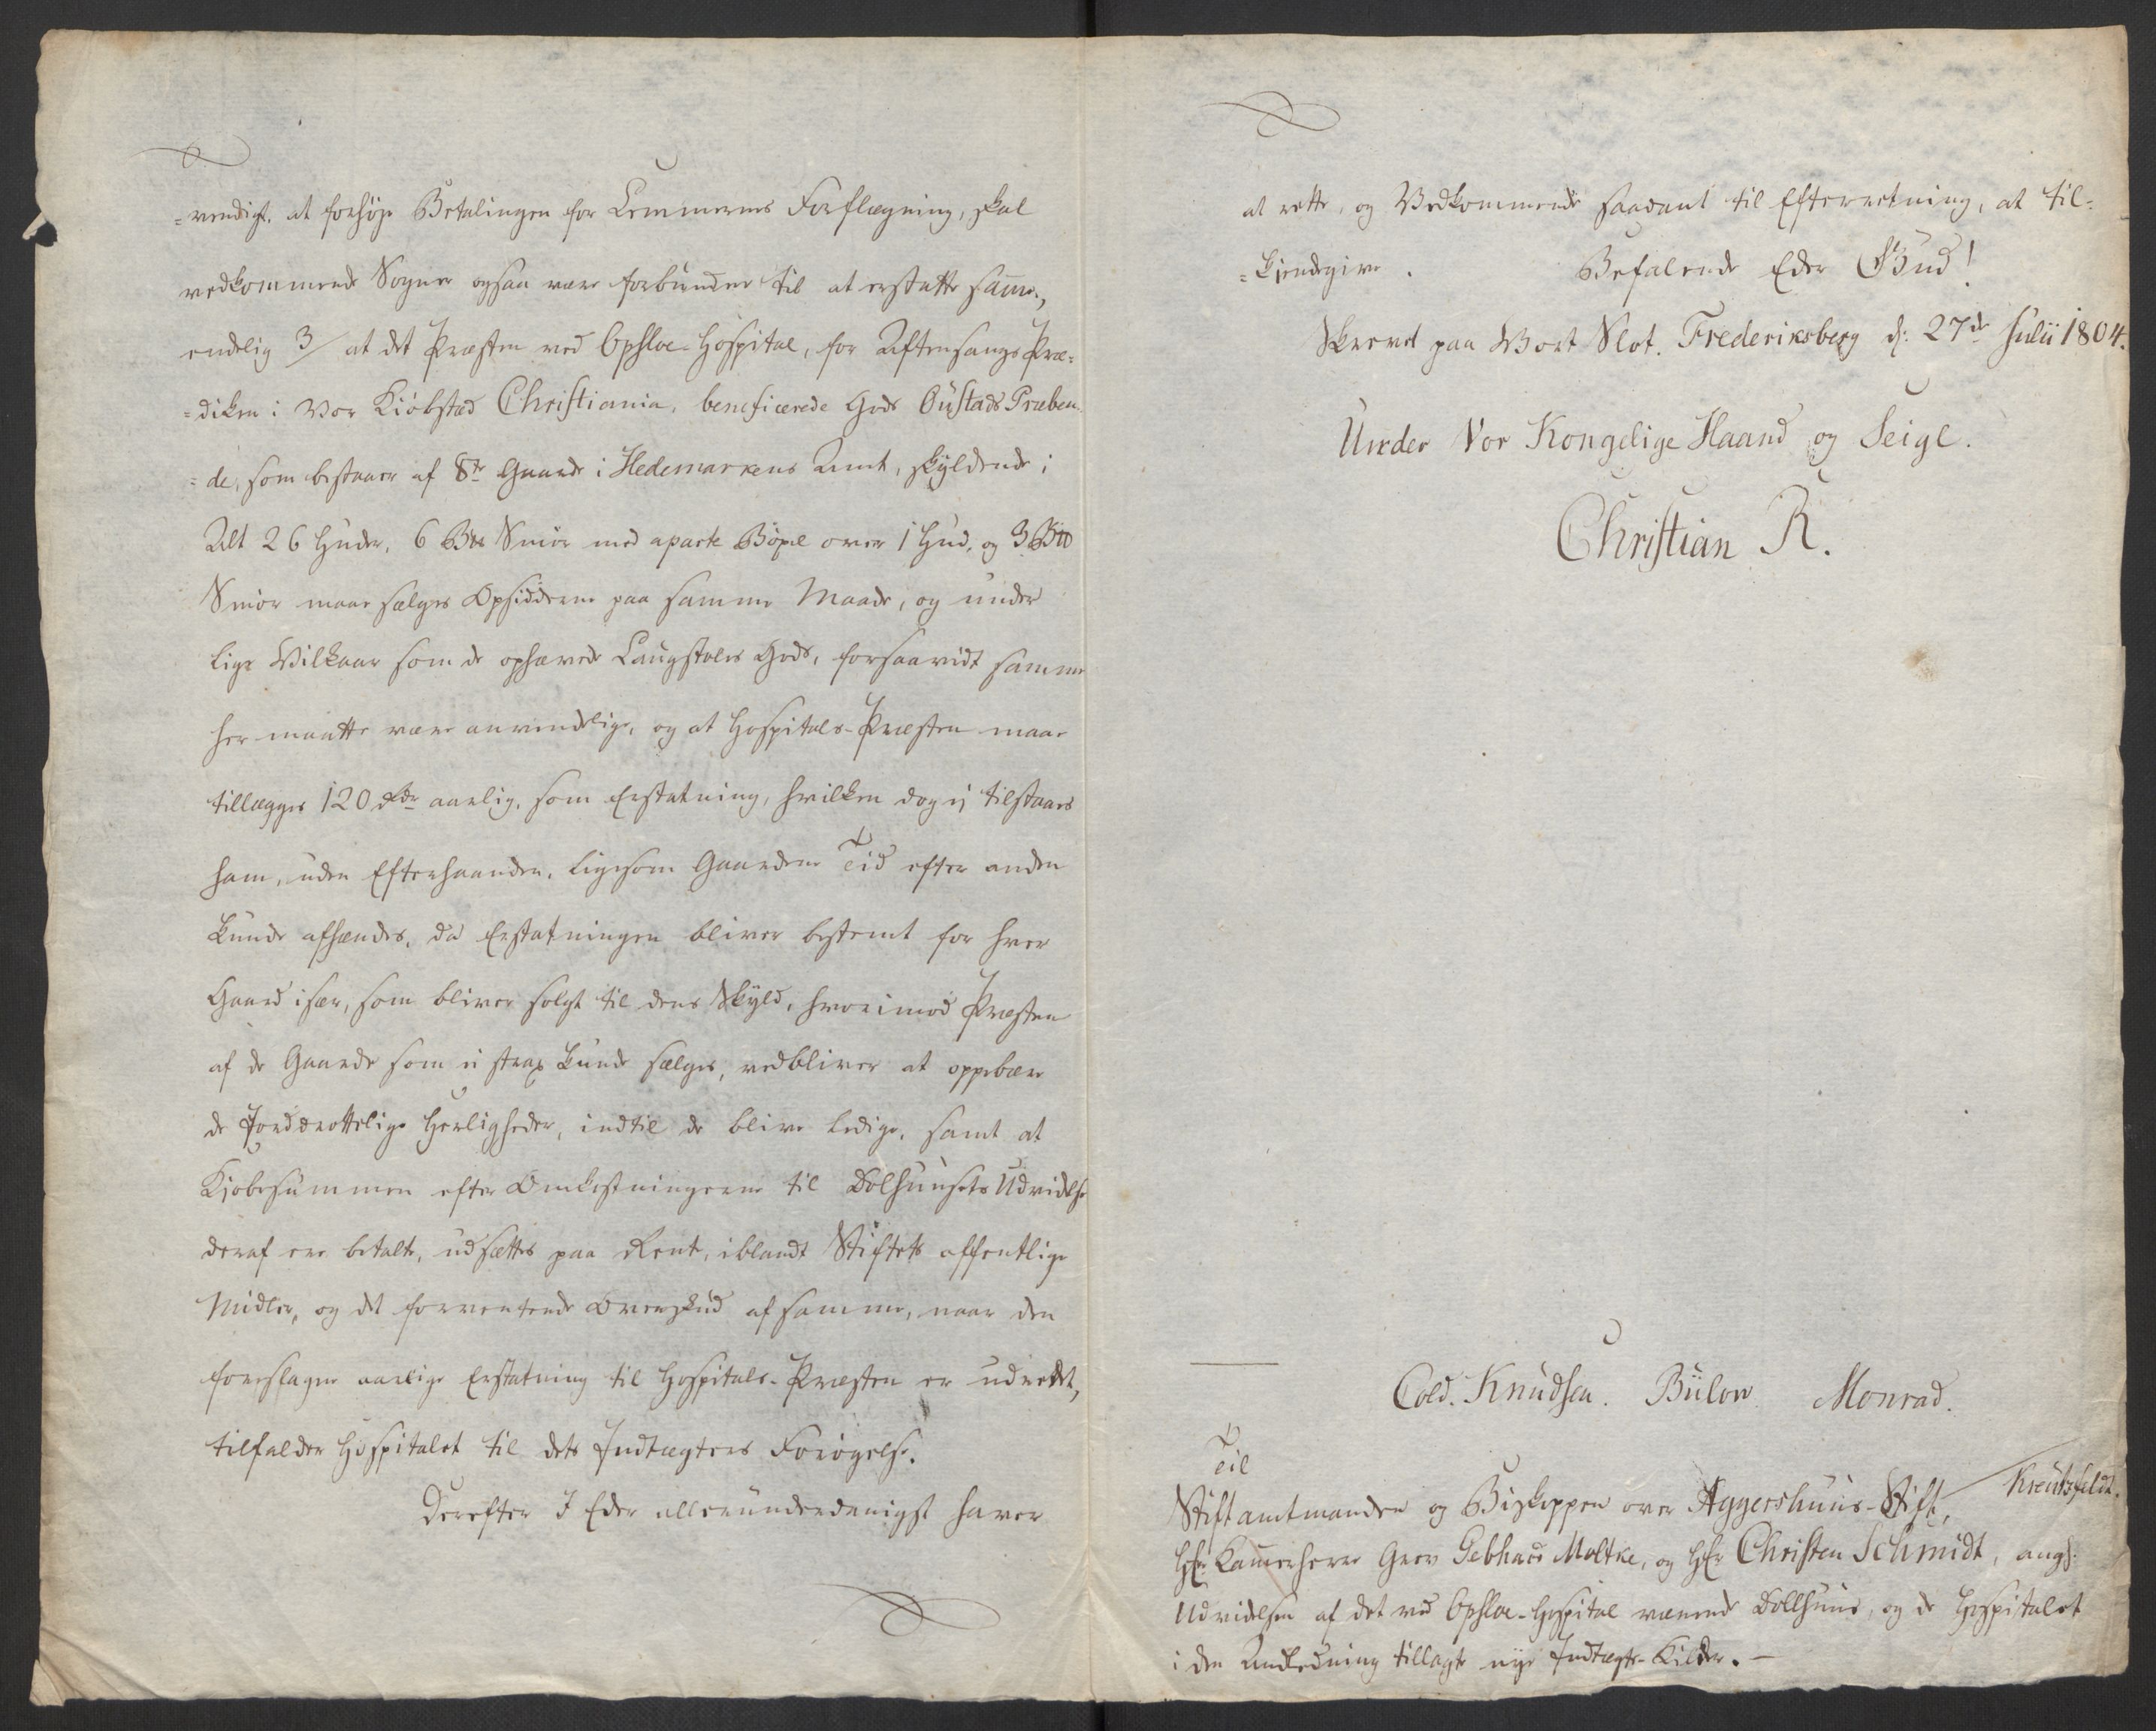 =vendigt, at forhøje Betalingen for Lemmernes Forflegning, skal
vedkommende Sogner ogsaa være forbunden til at erstatte samme,
endelig 3/ at det Præsten ved Opsloe-Hospital, for Aftensangs Præ=
=diken i Vor Kiöbstæd Christiania, beneficerede Gods Oustads Præben=
=de, som bestaaer af 8te Gaarde i Hedemarkens Amt, skyldende i
Alt 26 Huder, 6 Bte Smör med aparte Böxel over 1 Hud, og 3 Btt
Smör maae sælges Opsidderne paa samme Maade, og under
lige Vilkaar som de ophævede Laugstoles Gods, forsaavidt samme
her maatte være anvendelige, og at Hospitals-Præsten maae
tillægges 120 rdr aarlig, som Erstatning, hvilken dog ej tilstaaes
ham, uden Efterhaanden, ligesom Gaardene Tid efter anden
kunde afhændes, da Erstatningen bliver bestemt for hver
Gaard især, som bliver solgt til dens Skyld, hvorimod Præsten
af de Gaarde som ei strax kunde sælges, vedbliver at oppebære
de Jorddrottelige Herligheder, indtil de blive ledige, samt at
Kjøbesummen efter Omkostningerne til Dolhuusets Udvidelse
deraf ere betalte, udsættes paa Rente, iblandt Stiftets offentlige
Midler, og det forventende Overskud af samme, naar den
foreslagne aarlige Erstatning til Hospitals-Præsten er udredet,
tilfalder Hospitalet til dets Indtægters Forøgelse.
Derefter I Eder allerunderdanigst haver
at rette, og Vedkommende saadant til Efterretning, at til=
=kjendegive. Befalende Eder Gud!
Skrevet paa Vort Slot Frederiksberg d: 27de Julii 1804.
Under Vor Kongelige Haand og Seigl.
Christian R.
Cold. Knudsen. Bülow. Monrad.
Kreutzfeldt.
Til
Stiftamtmanden og Biskoppen over Aggershuus-Stift,
Hr: Kammerherre Grev Gebhard Moltke, og Hr Christen Schmidt, ang:
Udvidelsen af det ved Opsloe-Hospital værende Dollhuus, og de Hospitalet
i den Anledning tillagte nye Indtægts-Kilder. —